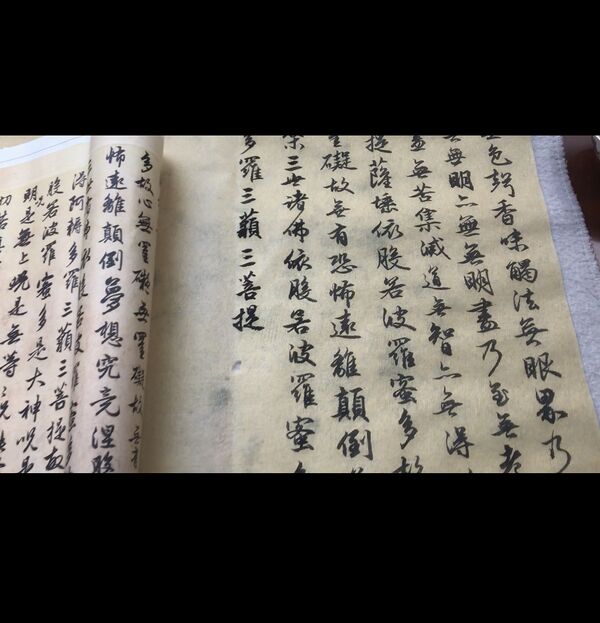 色聲香味觸法無眼界乃
無明亦無無明盡乃至無老
盡無苦集滅道無智亦無得
提薩埵依般若波羅蜜多故
罣礙故無有恐怖遠離顛倒
三世諸佛依般若波羅蜜
多羅三藐三菩提
多故心無罣礙無罣礙故無有
怖遠離顛倒夢想究竟涅
諸佛依般若波羅蜜多
得阿耨多羅三藐三菩提故
般若波羅蜜多是大神咒是
明是無上咒是無等
切苦真